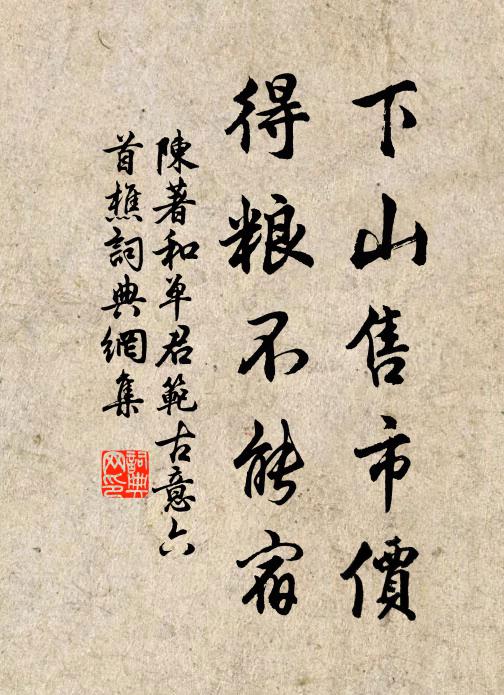 下山售市價
得粮不能宿
陳著和单君範古意六
首樵詞典網集
詞典网印